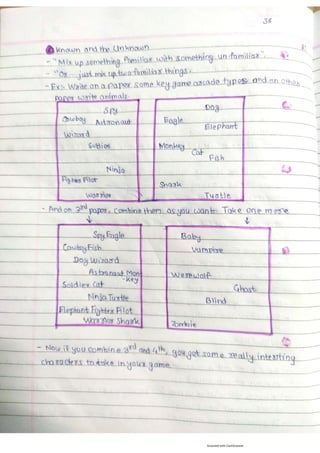 38
Known and the Unknown
- "Mix up something familiar with something un-familiar".
- "Or just mix up two familiar things.
- Ex:- Write on a paper some key game arcade types and on other
paper write animals.
Spy
Cowboy
Astronaut
Wizard
Soldier
Ninja
Fighter Pilot
Warrior
Dog
Eagle
Elephant
Monkey
Cat
Fish
Shark
Turtle
- And on 3rd paper, combine them as you want. Take one more
Spy Eagle
Cowboy Fish
Dog Wizard
Astronaut Mon
-key
Soldier Cat
Ninja Turtle
Elephant Fighter Pilot
Warrior Shark
Baby
Vampire
Werewolf
Ghost
Blind
Zombie
- Now if you combine 3rd and 4th, you get some really intersting
characters to take in your game
Scanned with CamScanner